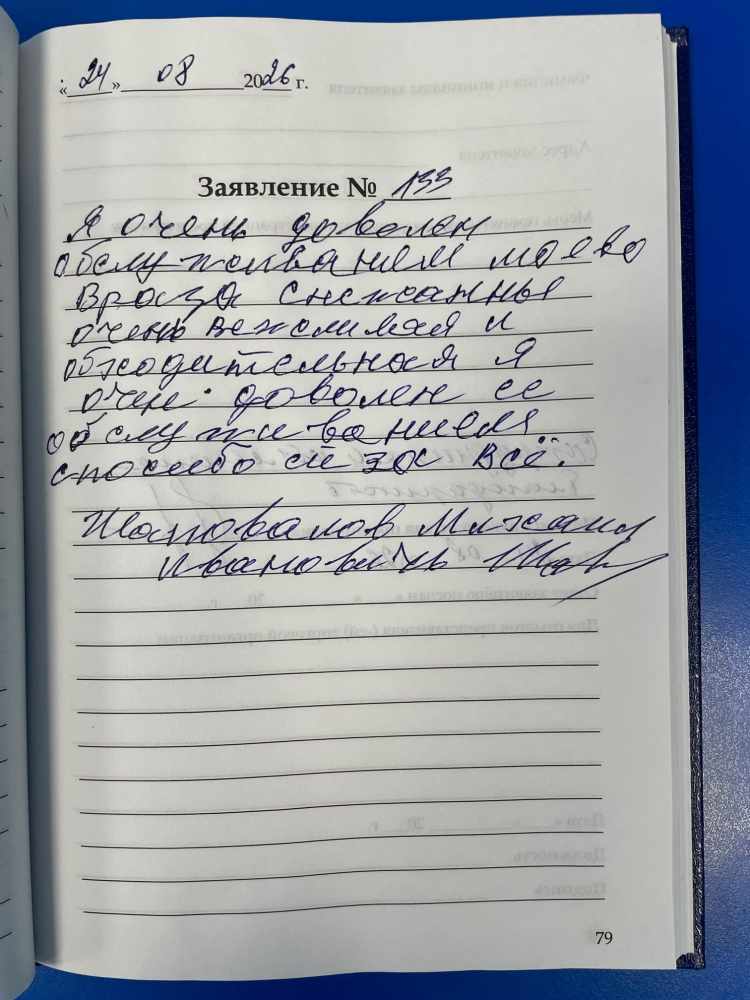 « 24 » 08 2026 г.
Заявление № 133
Я очень доволен
обслуживанием моево
врача Снежанны
очень вежливая и
обходительная я
очень доволен ее
обслуживанием
спосибо ей за всё.
Шаповалов Михаил
Иванович
79